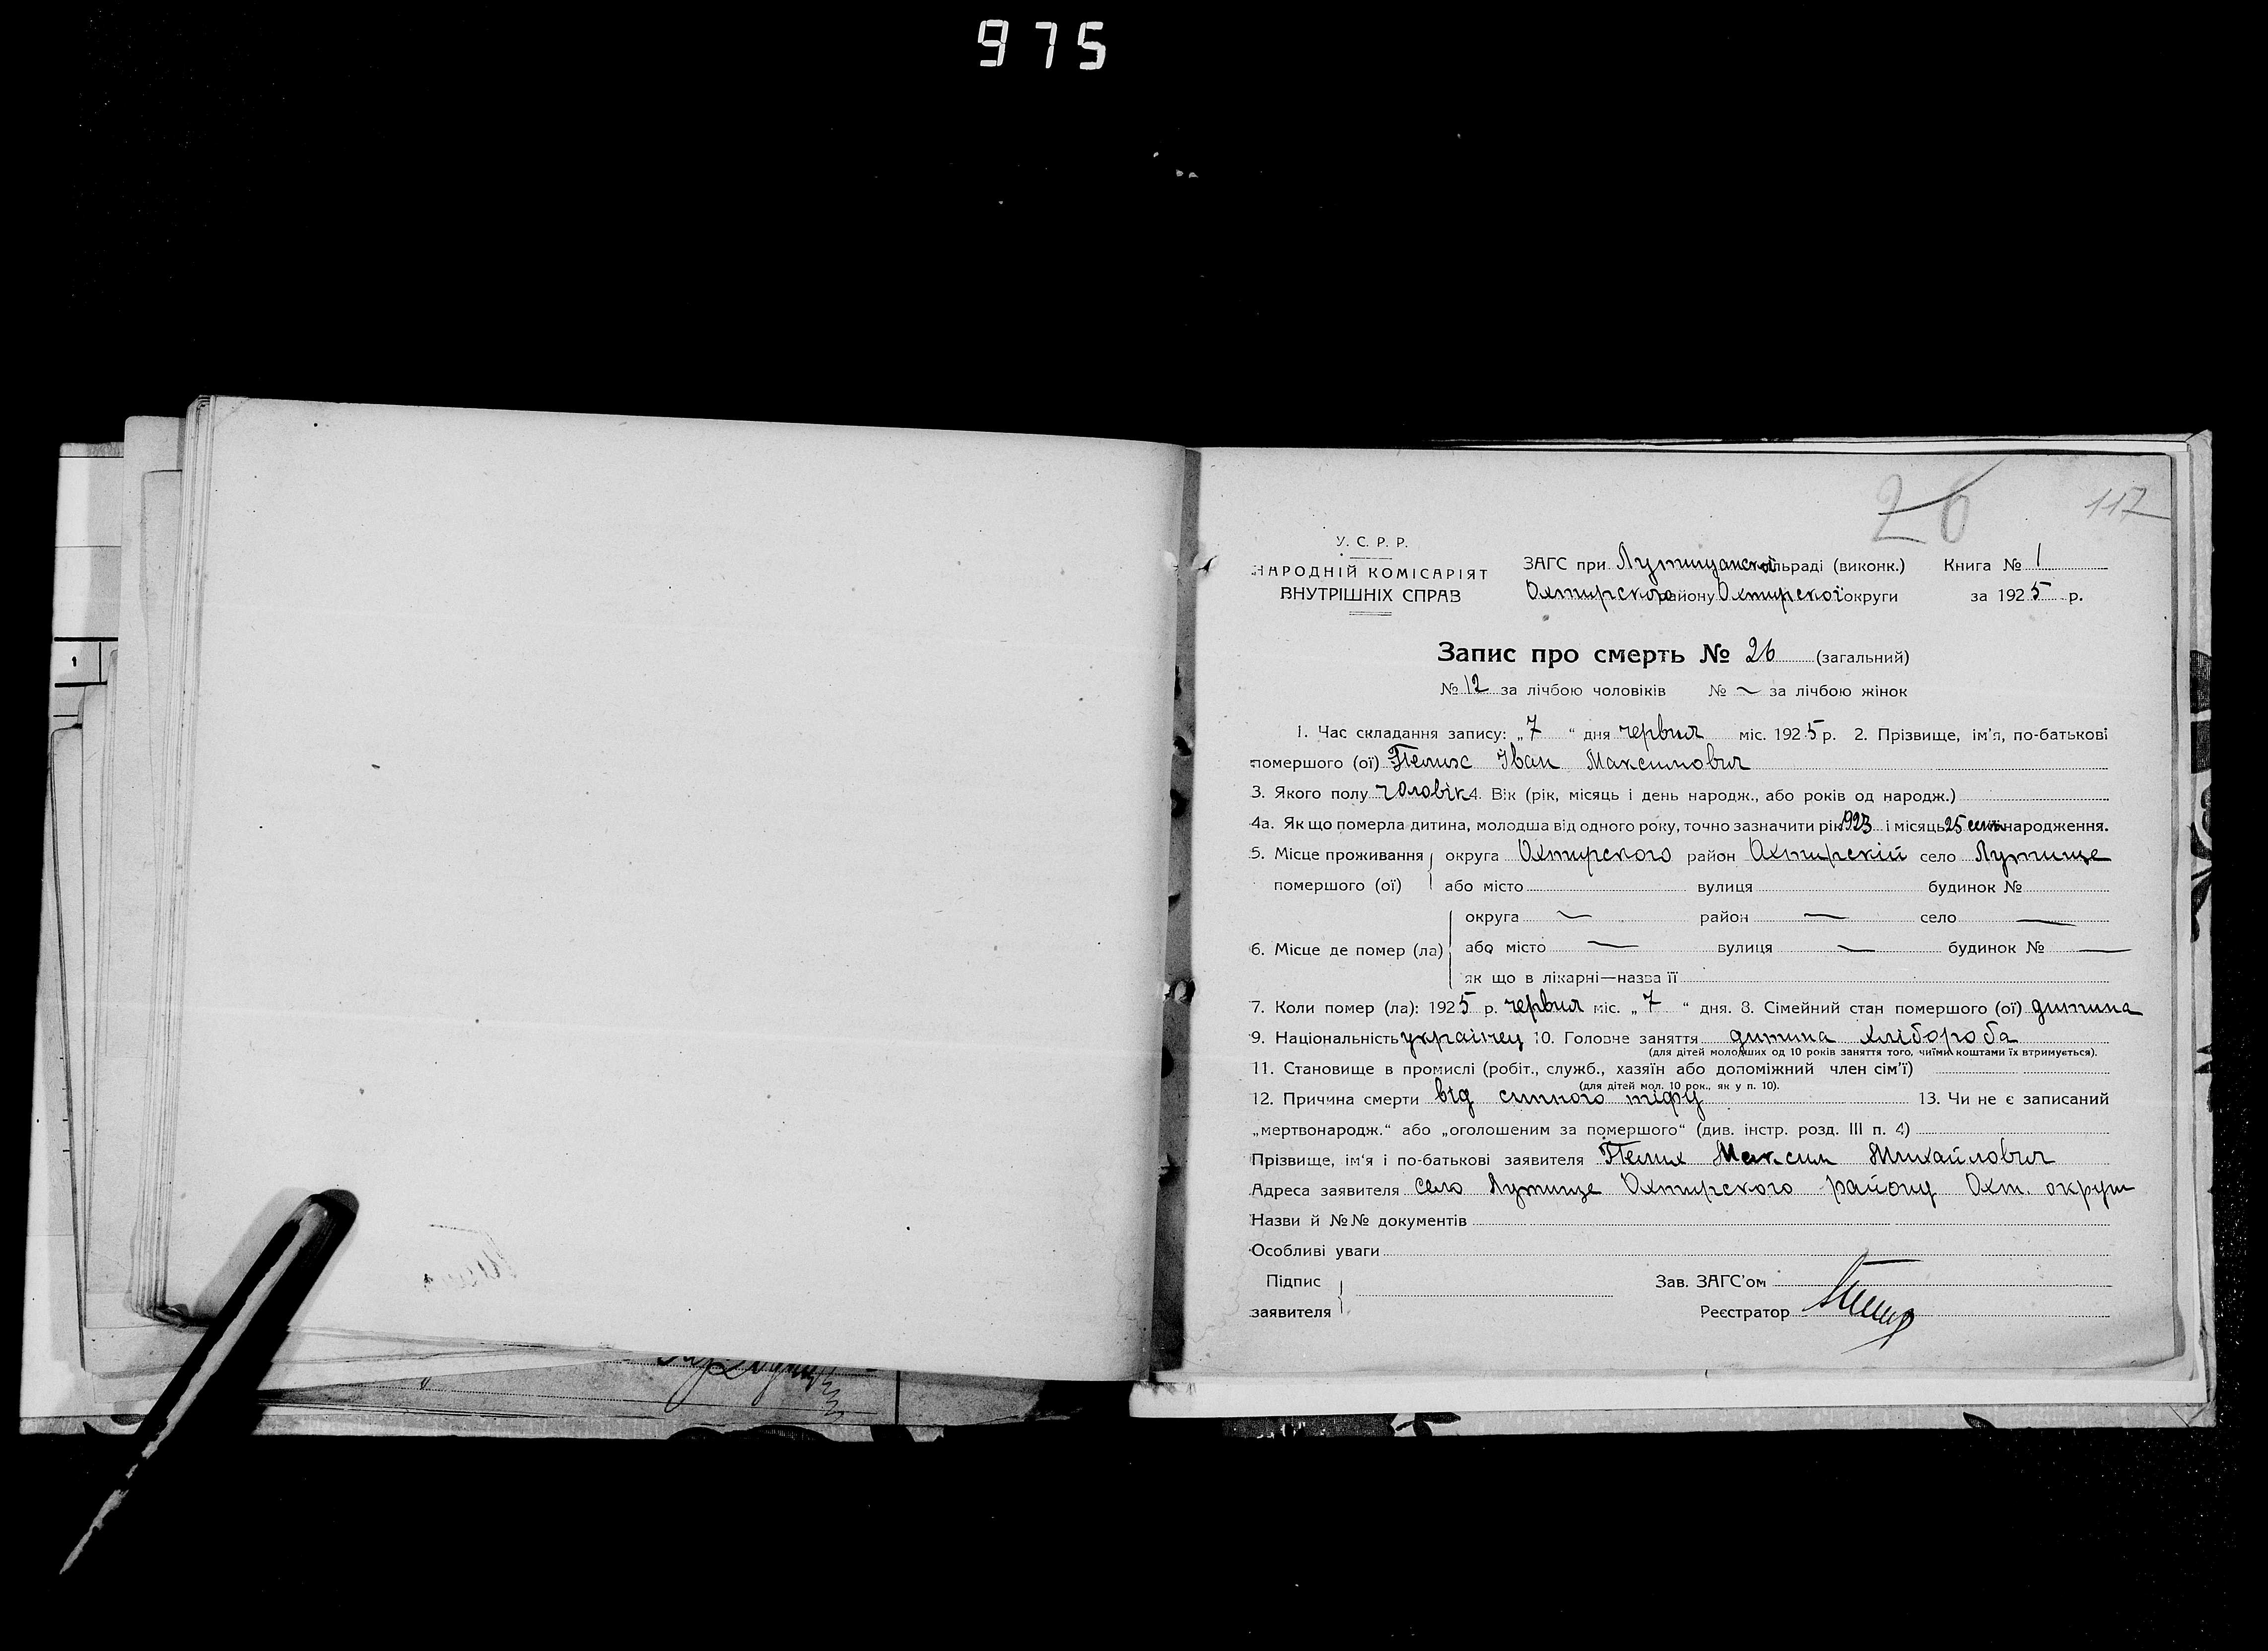 975
26
117
У. С. Р. Р.
НАРОДНІЙ КОМІСАРІЯТ
ВНУТРІШНІХ СПРАВ
ЗАГС при Лутищанской сільраді (виконк.) Книга № 1
Охтирского району Охтирскої округи за 1925 р.
Запис про смерть № 26 (загальний)
№ 12 за лічбою чоловіків № ~ за лічбою жінок
1. Час складання запису: „7“ дня червня міс. 1925 р. 2. Прізвище, ім'я, по-батькові
помершого (ої) Пелих Іван Максимович
3. Якого полу чоловік 4. Вік (рік, місяць і день народж., або років од народж.)
4а. Як що померла дитина, молодша від одного року, точно зазначити рік 1923 і місяць 25 народження.
5. Місце проживання помершого (ої) округа Охтирского район Охтирскій село Лутище
або місто вулиця будинок №
6. Місце де помер (ла) округа — район — село —
або місто — вулиця — будинок № —
як що в лікарні—назва її
7. Коли помер (ла): 1925 р. червня міс. „7“ дня. 8. Сімейний стан помершого (ої) дитина
9. Національність українец 10. Головне заняття дитина хлібороба
(для дітей молодших од 10 років заняття того, чиїми коштами їх втримується).
11. Становище в промислі (робіт., служб., хазяїн або допоміжний член сім'ї)
(для дітей мол. 10 рок., як у п. 10).
12. Причина смерти від сипного тіфу 13. Чи не є записаний
„мертвонародж.“ або „оголошеним за помершого“ (див. інстр. розд. III п. 4)
Прізвище, ім'я і по-батькові заявителя Пелих Максим Михайлович
Адреса заявителя село Лутище Охтирского району Охт. округи
Назви й №№ документів
Особливі уваги
Підпис заявителя
Зав. ЗАГС'ом
Реєстратор